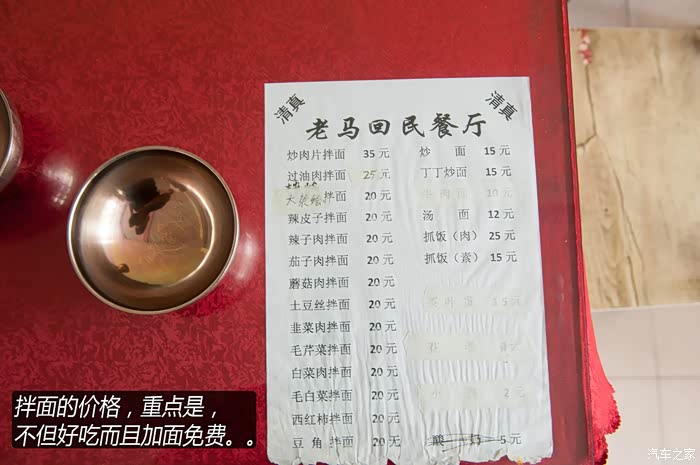 清真
清真
老马回民餐厅
炒肉片拌面 35元
过油肉拌面 25元
拌面 20元
辣皮子拌面 20元
辣子肉拌面 20元
茄子肉拌面 20元
蘑菇肉拌面 20元
土豆丝拌面 20元
韭菜肉拌面 20元
毛芹菜拌面 20元
白菜肉拌面 20元
毛白菜拌面 20元
西红柿拌面 20元
豆角拌面 20元
炒面 15元
丁丁炒面 15元
牛肉面 10元
汤面 12元
抓饭（肉） 25元
抓饭（素） 15元
15元
2元
酸奶 5元
拌面的价格，重点是，
不但好吃而且加面免费。。
汽车之家